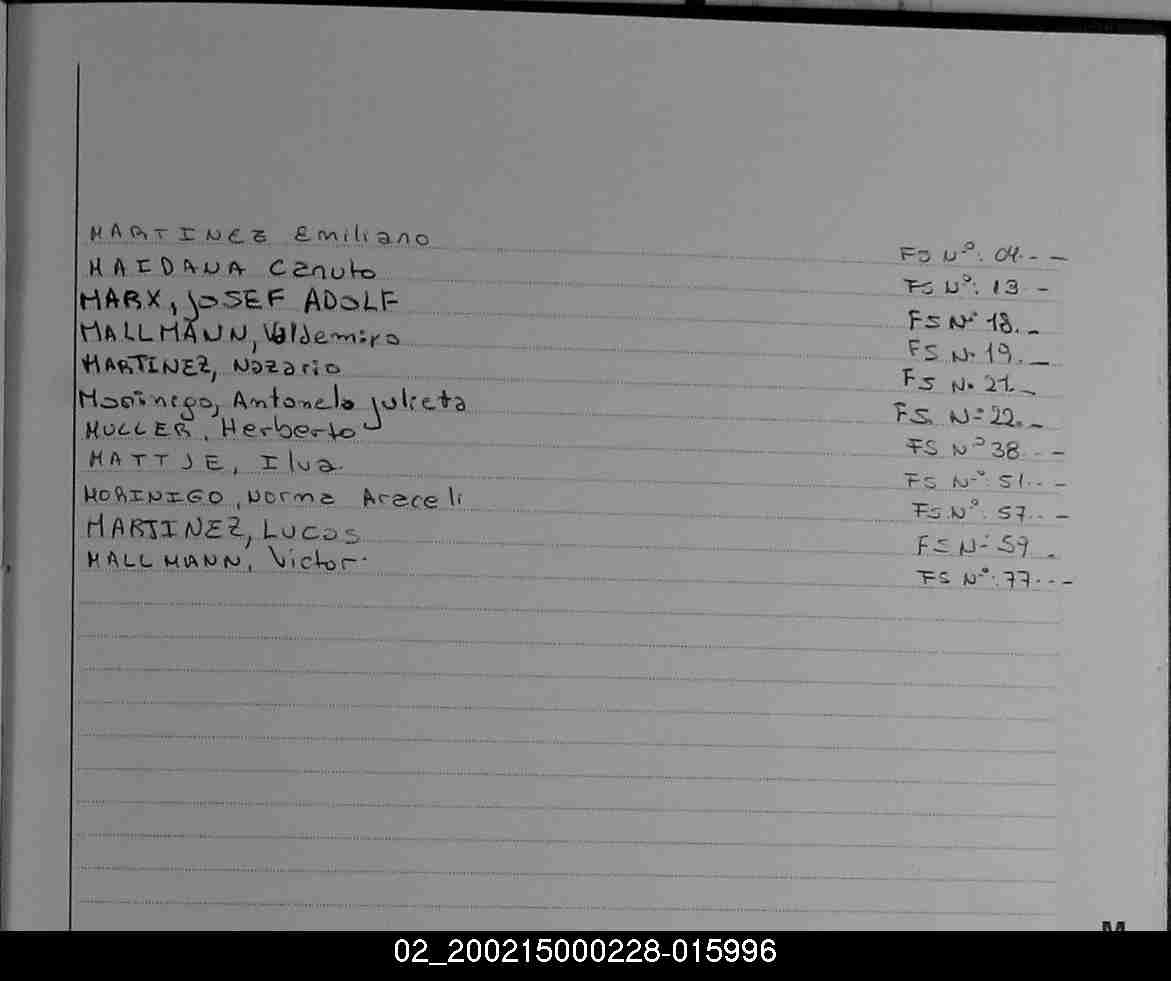 MARTINEZ Emiliano FS Nº: 04.--
MAIDANA Canuto FS Nº: 13 -
MARX, JOSEF ADOLF FS Nº 18.-
MALLMANN, Valdemiro FS N. 19.-
MARTINEZ, Nazario FS N. 21.-
Morinego, Antonela Julieta FS. Nº 22.-
MULLER, Herberto FS Nº 38.--
MATTJE, Ilva FS Nº: 51.--
MORINIGO, Norma Araceli FS.Nº: 57.--
MARTINEZ, LUCAS FS Nº 59.
MALLMANN, Victor. FS Nº: 77.--
M
02_200215000228-015996